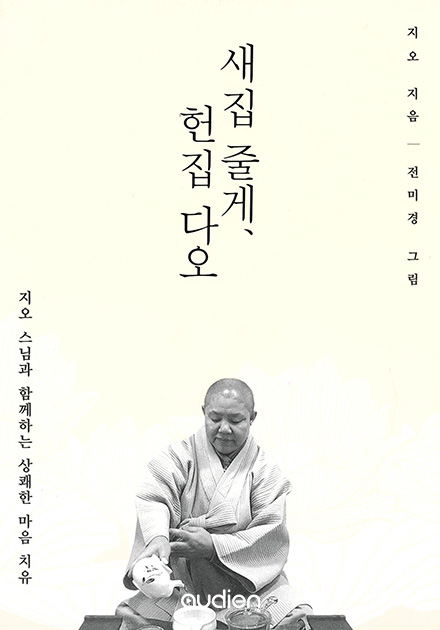 지오 지음 — 전미경 그림
새집 줄게,
헌집 다오
지오 스님과 함께하는 상쾌한 마음 치유
audien